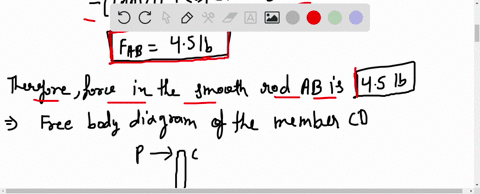 F_AB = 4.5 lb
Therefore, force in the smooth rod AB is 4.5 lb
⇒ Free body diagram of the member CD
P → C